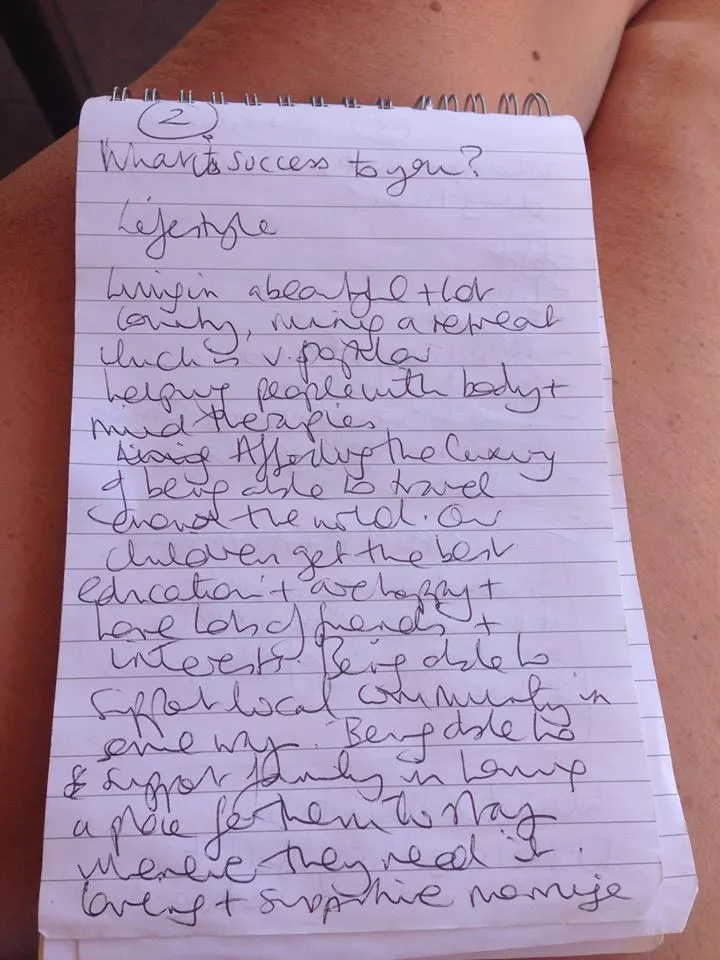 2.
What is success to you?
Lifestyle
Living in a beautiful + hot
country, running a retreat
which is v. popular
helping people with body +
mind therapies
living Affording the luxury
of being able to travel
around the world. Our
children get the best
education + are happy +
have lots of friends +
interests. Being able to
support local community in
some way. Being able to
& support family in having
a place for them to stay
whenever they need it.
loving + supportive marriage